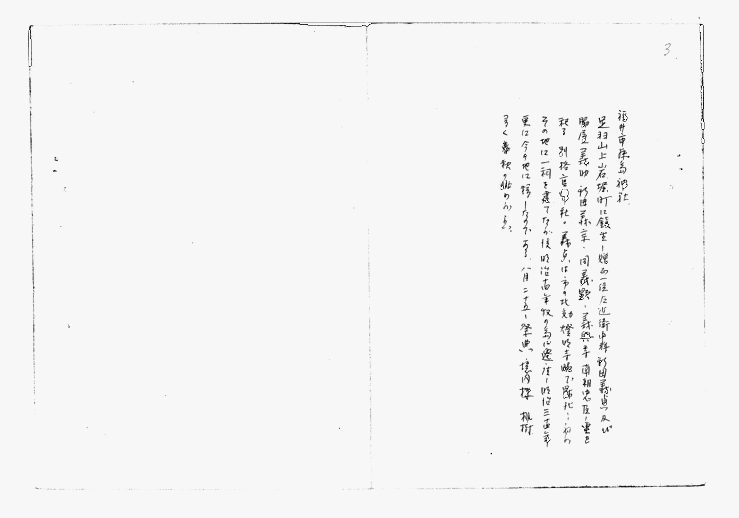 3
福井市藤島神社
足羽山上山石塚町に鎮坐し贈正一位左近衛中将新田義貞及び
脇屋義助 新田義宗・同義顕・義興等 南朝忠臣の霊を
祀る 別格官幣社。義貞は市の北 燈明寺畷で戦死し
その地に一祠を建てたが後明治 年 の為に遷座し明治三十四年
更に今の地に移したのである。八月二十五日祭典。境内桜 楓樹
多く春秋の眺めがよい。